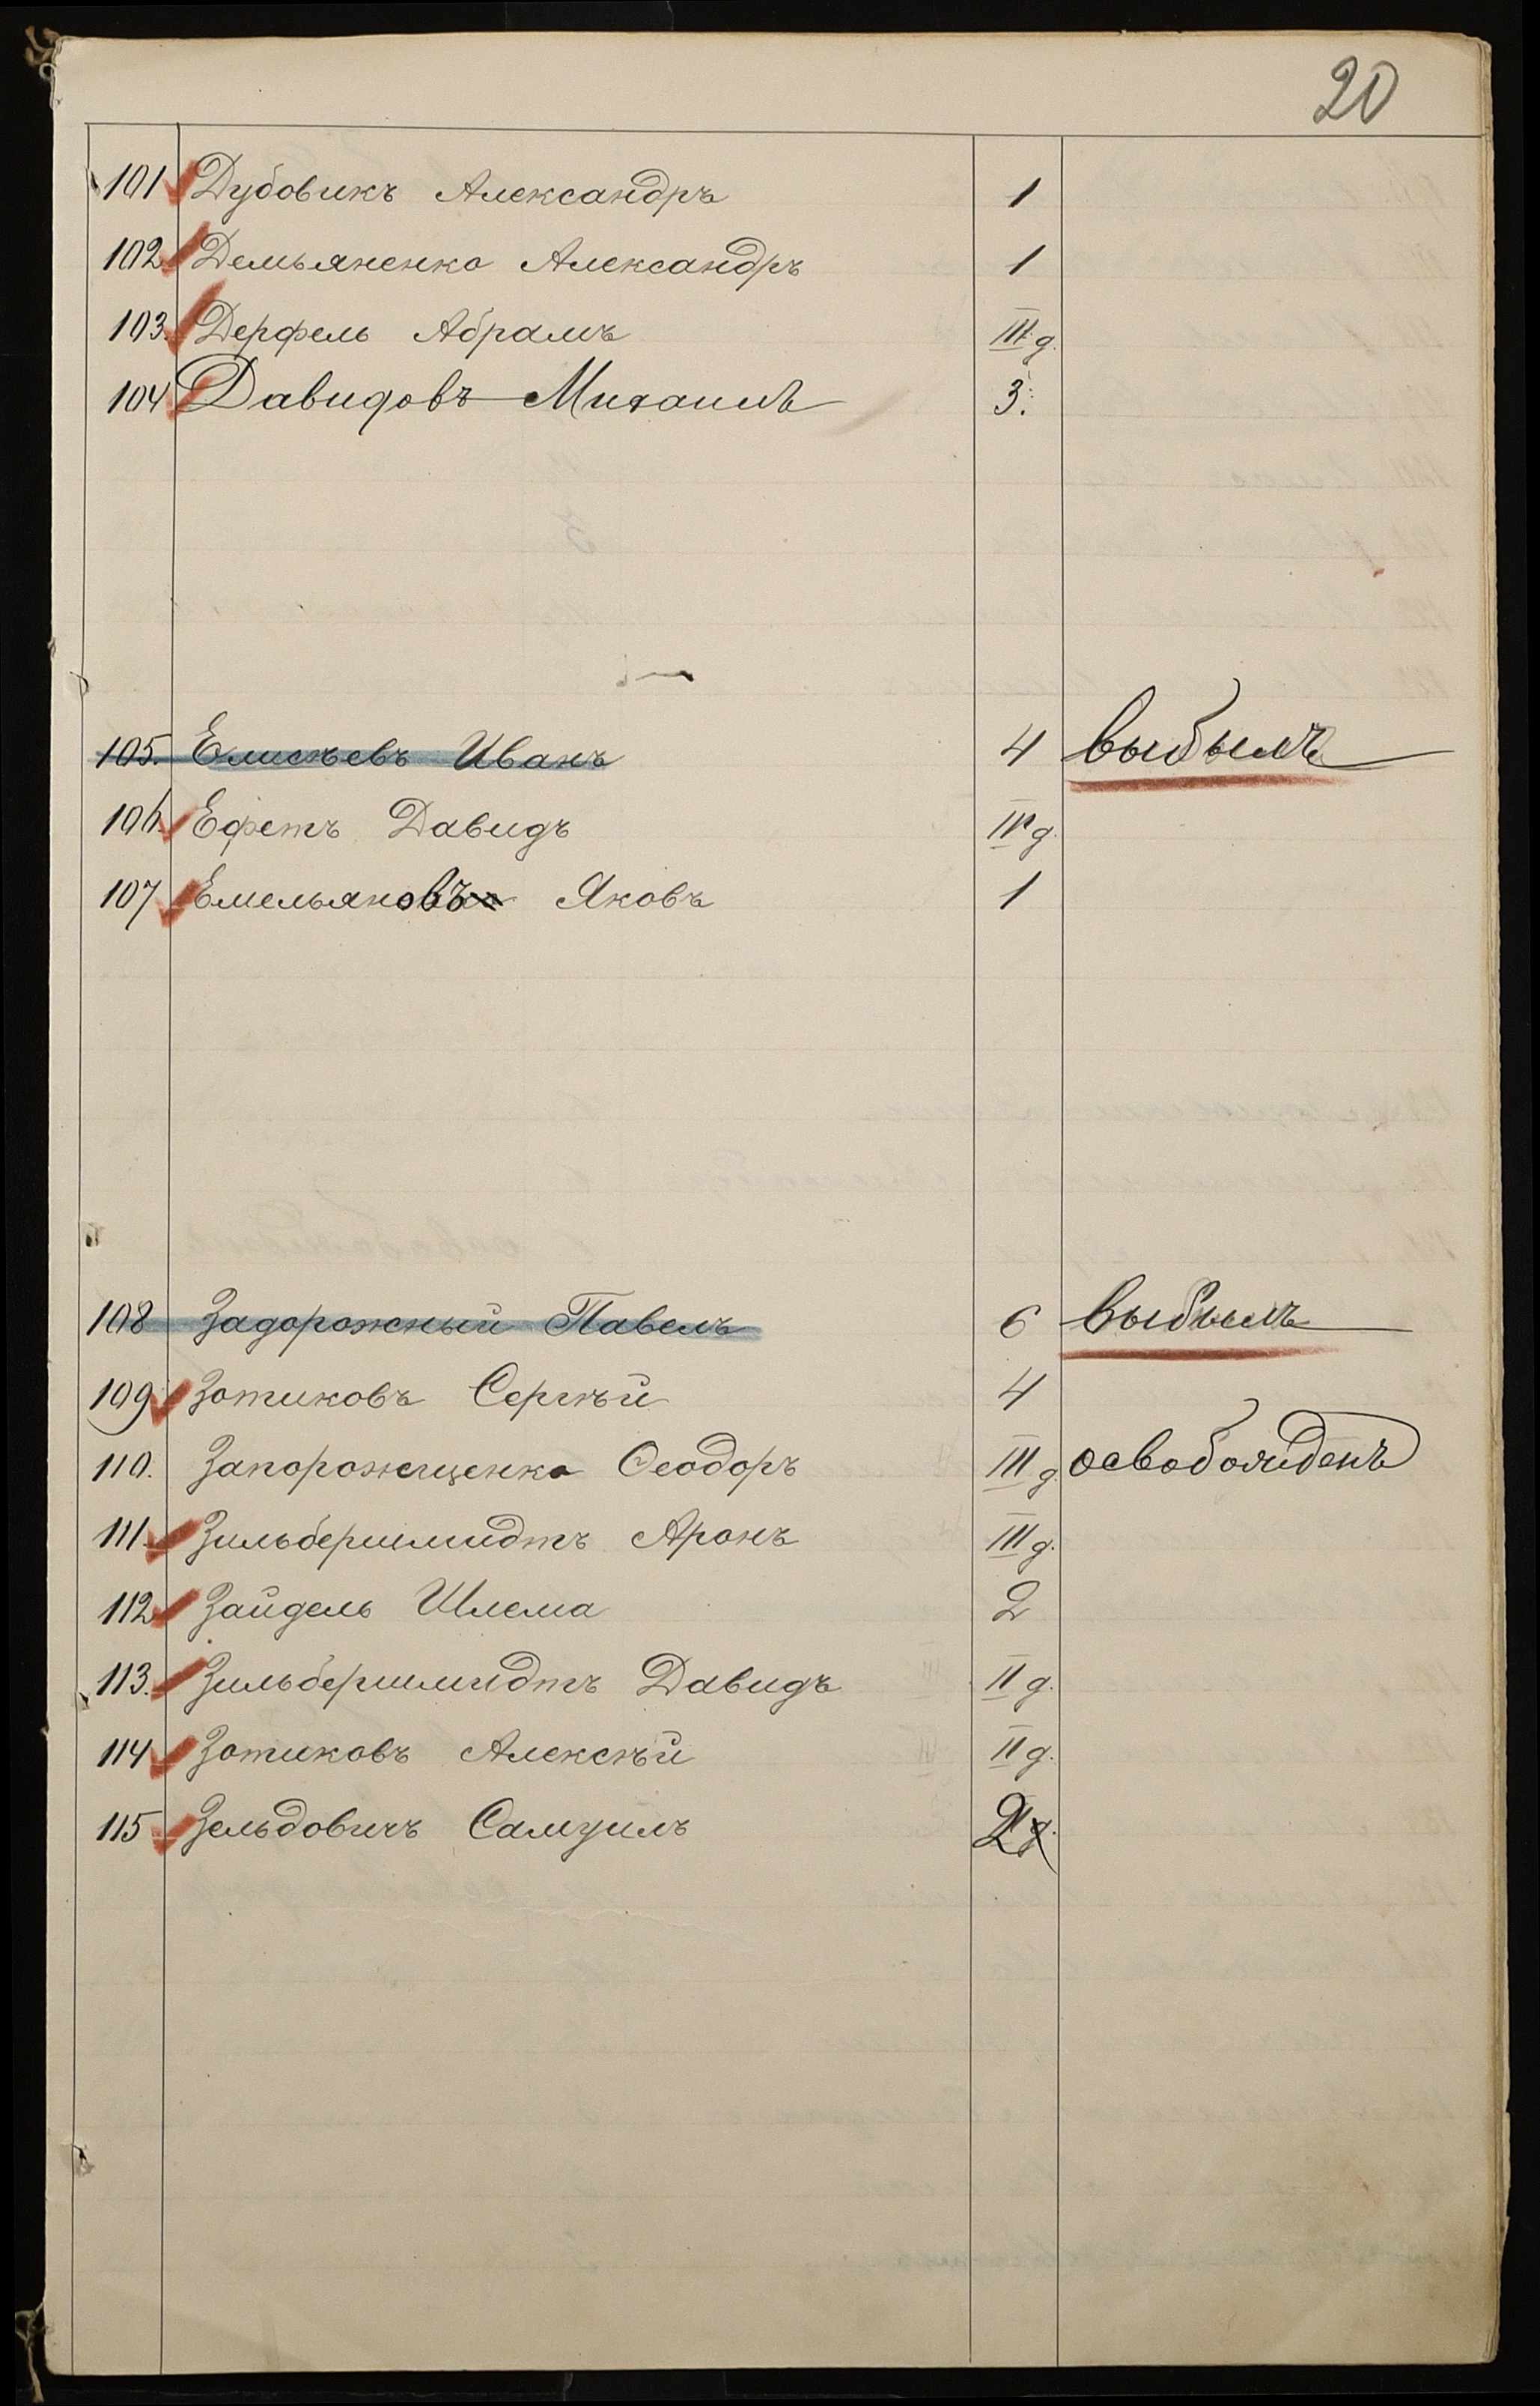 20
101 Дубовикъ Александръ 1
102 Демьяненко Александръ 1
103. Дерфель Абрамъ III д.
104 Давидовъ Михаилъ 3.
105. Елисѣевъ Иванъ 4 выбылъ
106. Ефетъ Давидъ IV д.
107 Емельяновъ Яковъ 1
108 Задорожный Павелъ 6 выбылъ
109 Зотиковъ Сергѣй 4
110. Запорожещенко Ѳеодоръ III д. освобожденъ
111. Зильбершмидтъ Аронъ III д.
112 Зайдель Шлема 2
113. Зильбершмидтъ Давидъ II д.
114 Зотиковъ Алексѣй II д.
115 Зельдовичъ Самуилъ 2